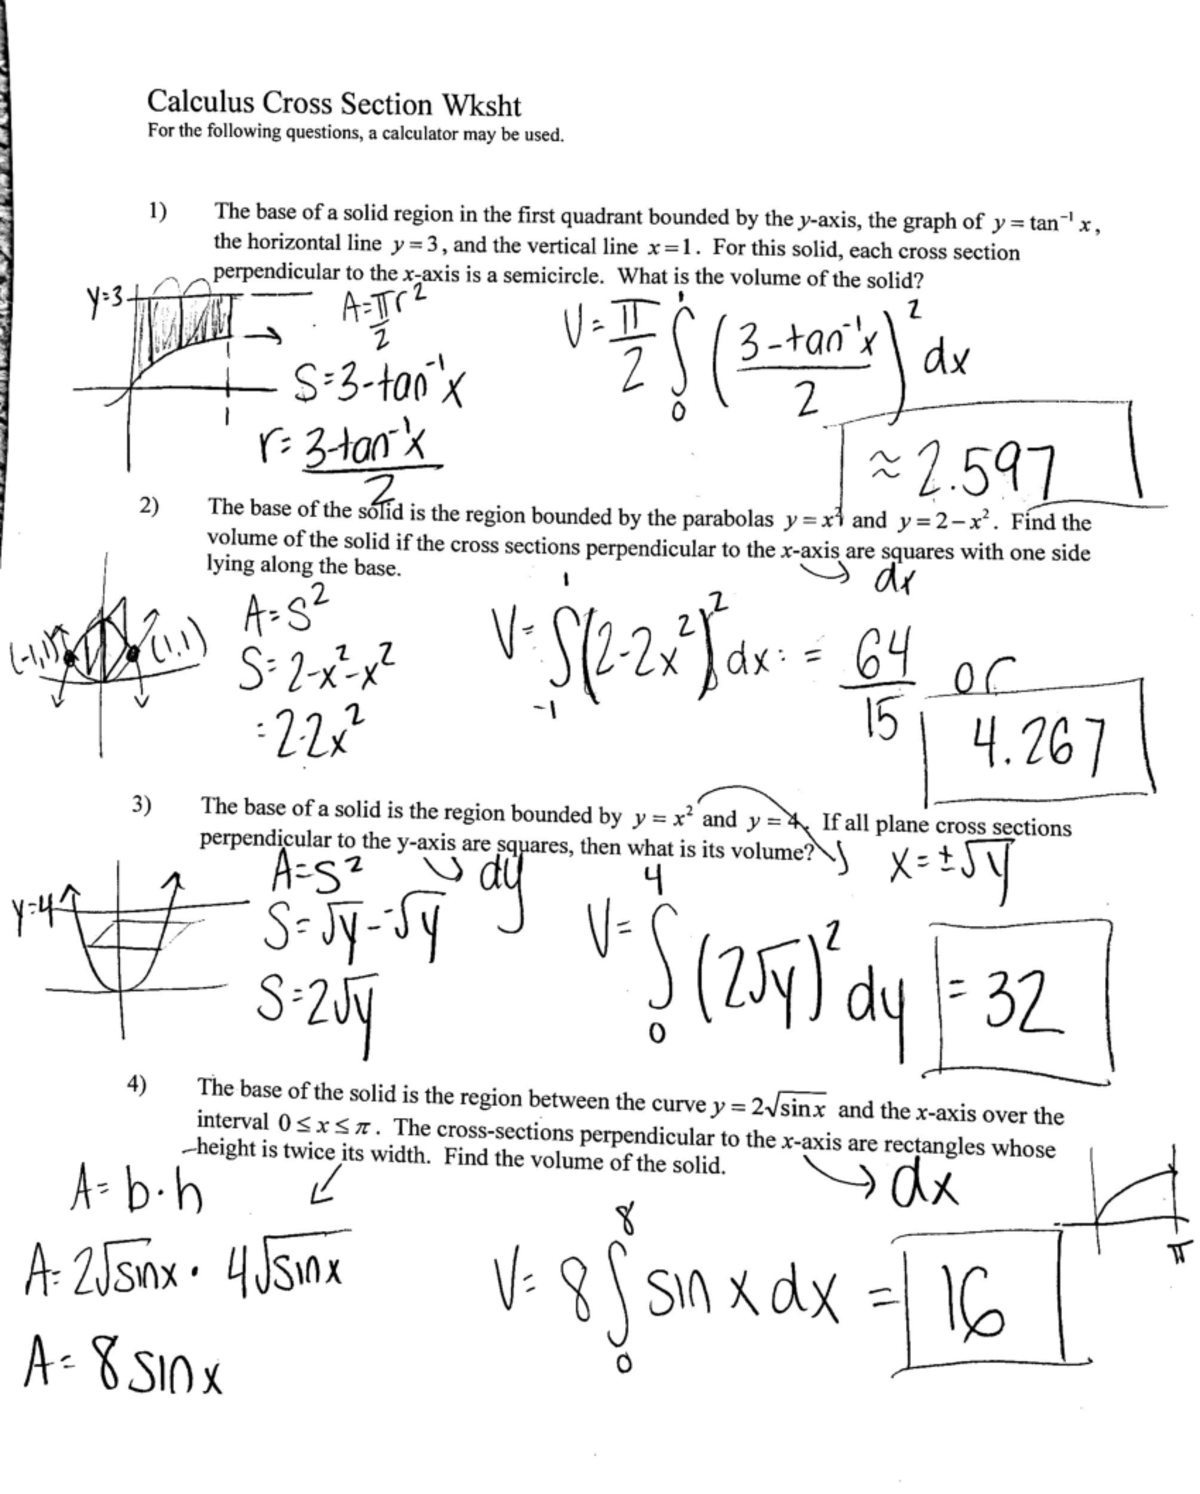 Calculus Cross Section Wksht
For the following questions, a calculator may be used.
1) The base of a solid region in the first quadrant bounded by the y-axis, the graph of y = tan⁻¹ x,
the horizontal line y = 3, and the vertical line x = 1. For this solid, each cross section
perpendicular to the x-axis is a semicircle. What is the volume of the solid?
y=3
A=πr²/2
S=3-tan⁻¹x
r=(3-tan⁻¹x)/2
1
V=π/2 ∫₀¹ ((3-tan⁻¹x)/2)² dx
≈2.597
2) The base of the solid is the region bounded by the parabolas y = x² and y = 2 – x². Find the
volume of the solid if the cross sections perpendicular to the x-axis are squares with one side
lying along the base.
dx
(-1,1)
(1,1)
A=S²
S=2-x²-x²
=2-2x²
V=∫₋₁¹(2-2x²)² dx = 64/15 or
4.267
3) The base of a solid is the region bounded by y = x² and y = 4. If all plane cross sections
perpendicular to the y-axis are squares, then what is its volume?
x=±√y
dy
y=4
A=S²
S=√y--√y
S=2√y
V=∫₀⁴ (2√y)² dy = 32
4) The base of the solid is the region between the curve y = 2√sin x and the x-axis over the
interval 0 ≤ x ≤ π. The cross-sections perpendicular to the x-axis are rectangles whose
height is twice its width. Find the volume of the solid.
dx
π
A=b·h
A=2√sinx · 4√sinx
A=8sinx
V=8∫₀⁸ sin x dx = 16